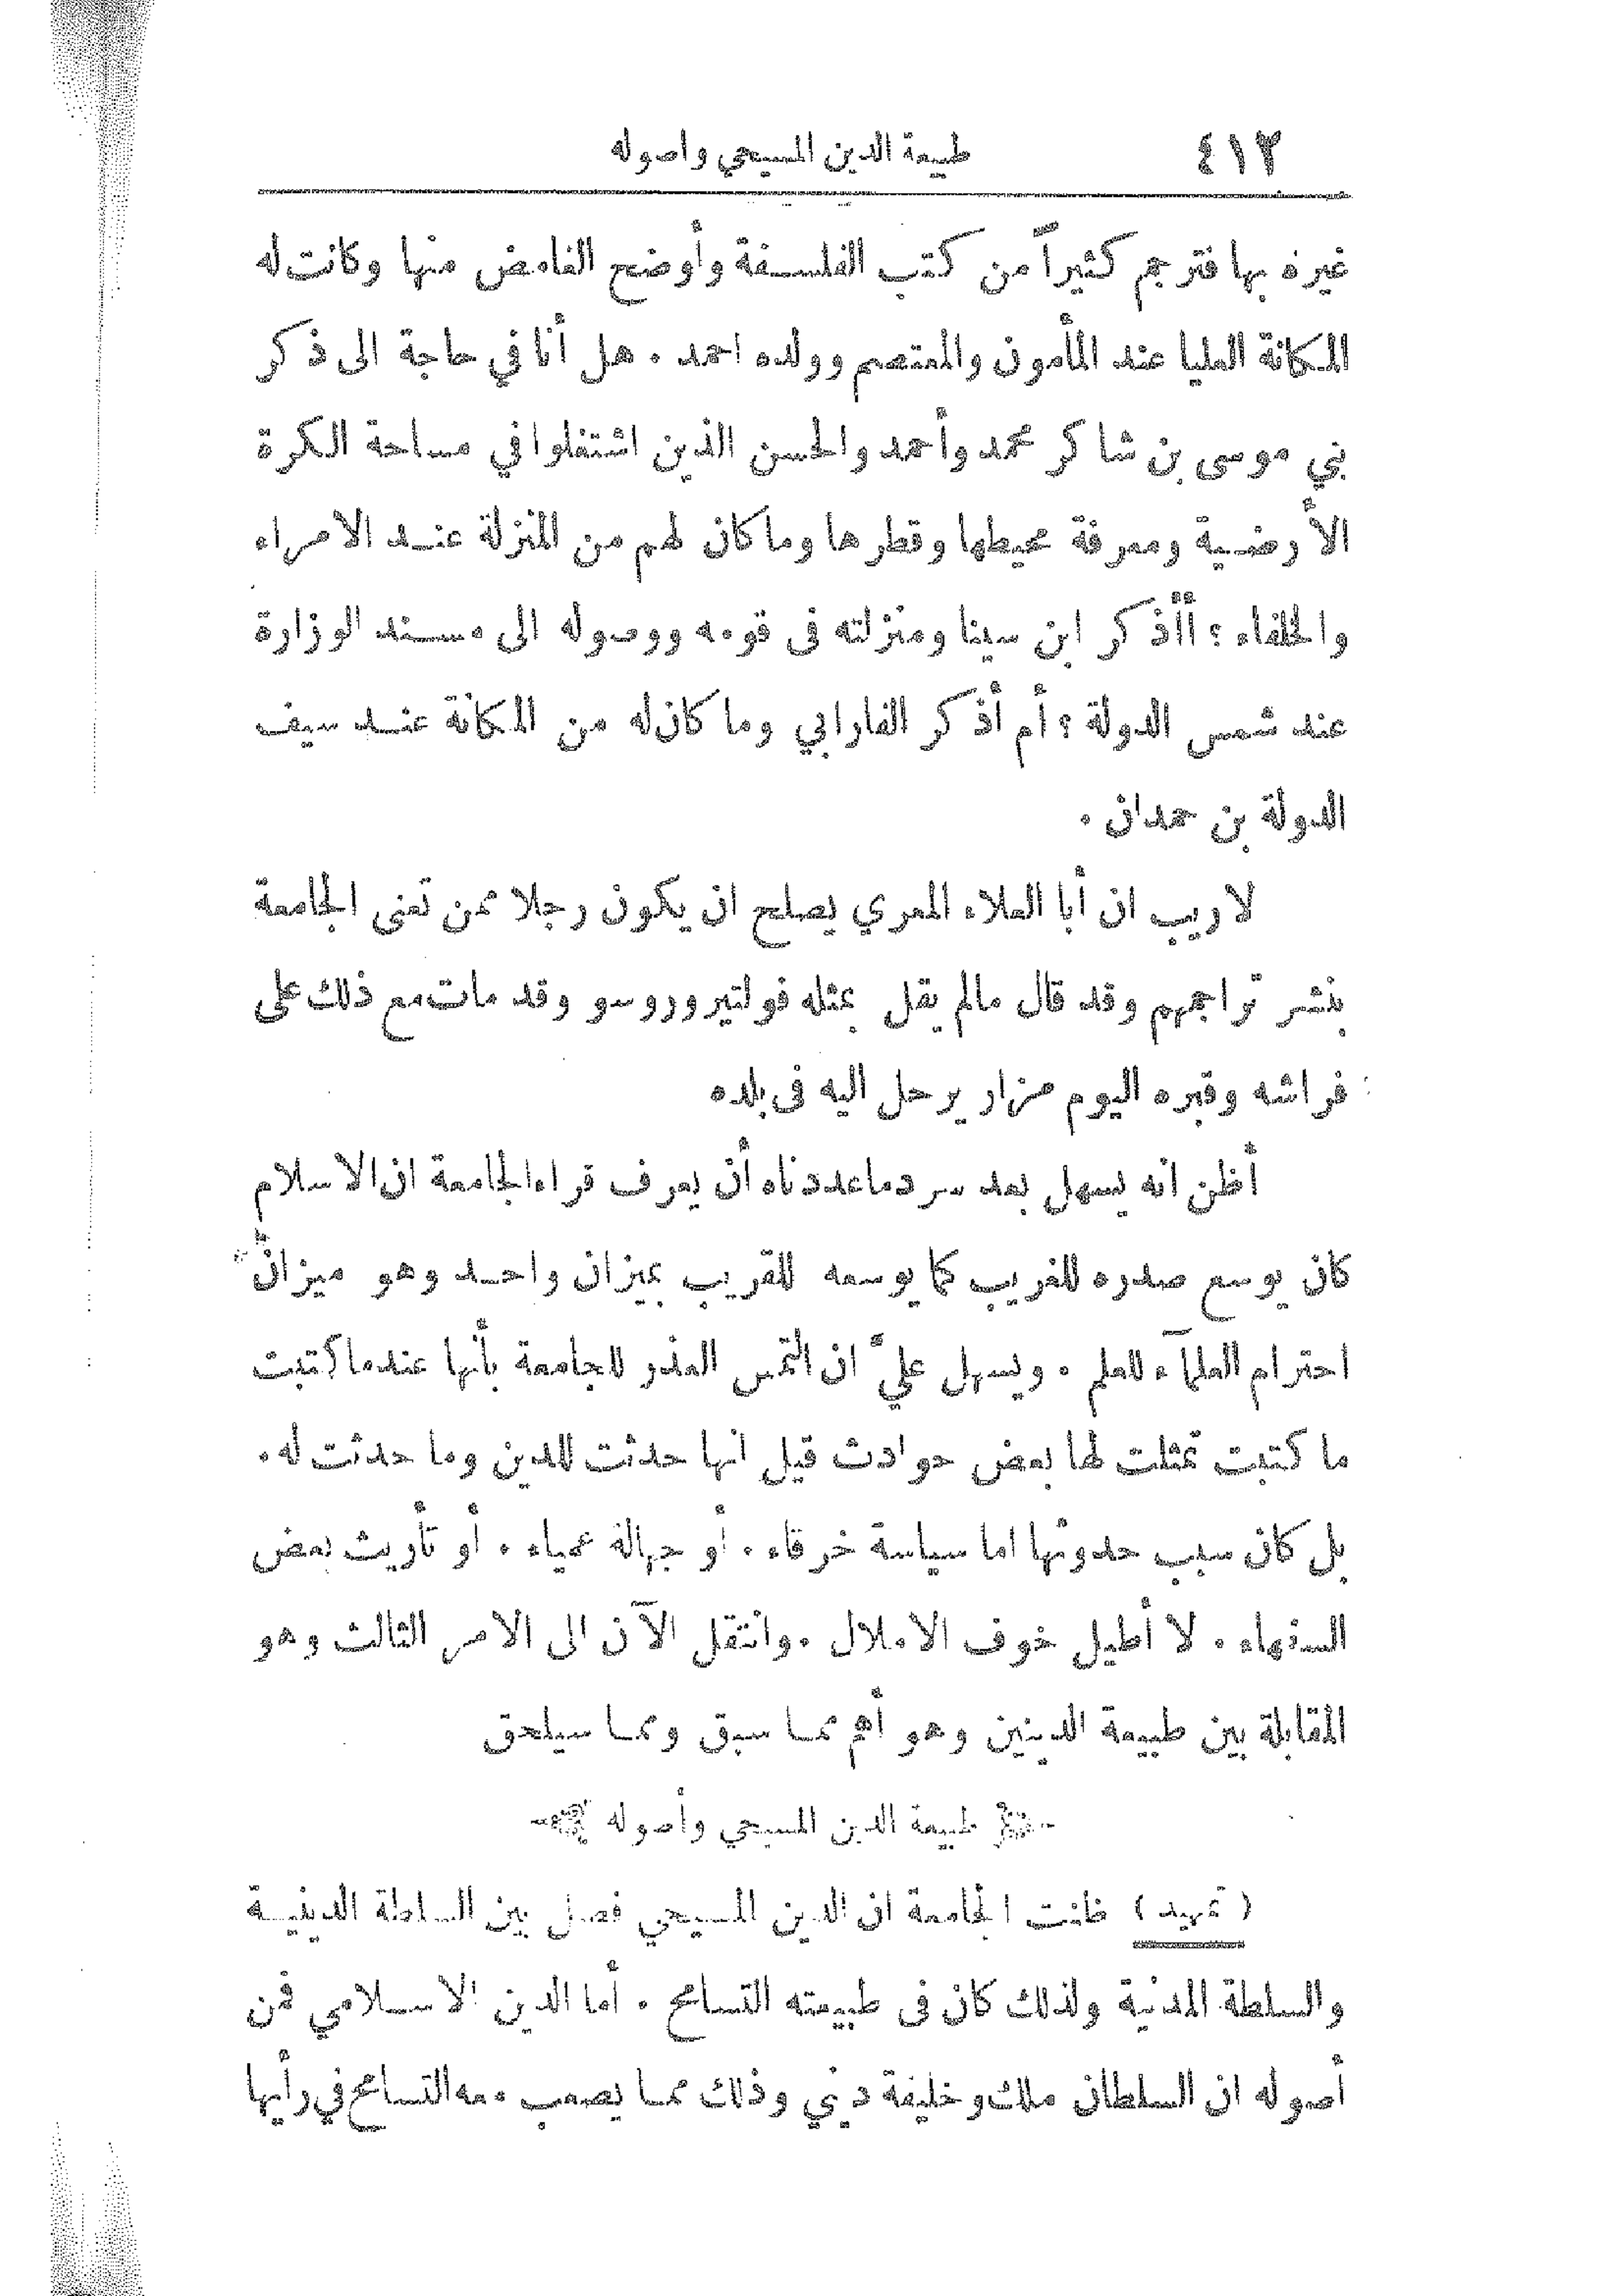 ٤١٢ طبيعة الدين المسيحي واصوله
غيره بها فترجم كثيراً من كتب الفلسفة وأوضح الغامض منها وكانت له
المكانة العليا عند المأمون والمعتصم وولده احمد . هل أنا في حاجة الى ذكر
بني موسى بن شاكر محمد وأحمد والحسن الذين اشتغلوا في مساحة الكرة
الأرضية ومعرفة محيطها وقطرها وما كان لهم من المنزلة عند الامراء
والخلفاء ؟ أأذكر ابن سينا ومنزلته فى قومه ووصوله الى مسند الوزارة
عند شمس الدولة ؟ أم أذكر الفارابي وما كان له من المكانة عند سيف
الدولة بن حمدان .
لا ريب ان أبا العلاء المعري يصلح ان يكون رجلا ممن تعنى الجامعة
بنشر تراجمهم وقد قال مالم يقل بمثله فولتير وروسو وقد مات مع ذلك على
فراشه وقبره اليوم مزار يرحل اليه فى بلده
أظن انه يسهل بعد سرد ما عددناه أن يعرف قراء الجامعة ان الاسلام
كان يوسع صدره للغريب كما يوسعه للقريب بميزان واحد وهو ميزان
احترام العلمآء للعلم . ويسهل عليّ ان التمس العذر للجامعة بأنها عندما كتبت
ما كتبت تمثلت لها بعض حوادث قيل انها حدثت للدين وما حدثت له .
بل كان سبب حدوثها اما سياسة خرقاء . أو جهالة عمياء . أو تأريث بعض
السفهاء . لا أطيل خوف الاملال . وانتقل الآن الى الامر الثالث وهو
المقابلة بين طبيعة الدينين وهو أهم مما سبق ومما سيلحق
طبيعة الدين المسيحي وأصوله
( تمهيد ) ظنت الجامعة ان الدين المسيحي فصل بين السلطة الدينية
والسلطة المدنية ولذلك كان فى طبيعته التسامح . أما الدين الاسلامي فمن
أصوله ان السلطان ملك وخليفة ديني وذلك مما يصعب معه التسامح في رأيها